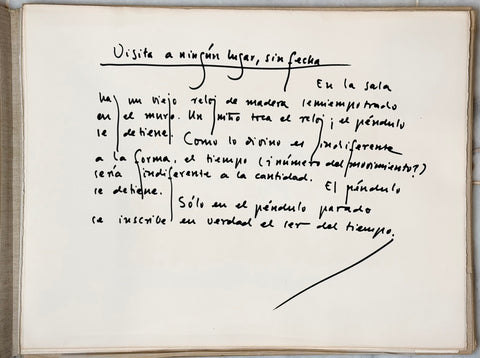 Visita a ningún lugar, sin fecha
En la sala
hay un viejo reloj de madera semiempotrado
en el muro. Un niño toca el reloj y el péndulo
se detiene. Como lo divino es indiferente
a la forma, el tiempo (¿número del movimiento?)
sería indiferente a la cantidad. El péndulo
se detiene.
Sólo en el péndulo parado
se inscribe en verdad el ser del tiempo.